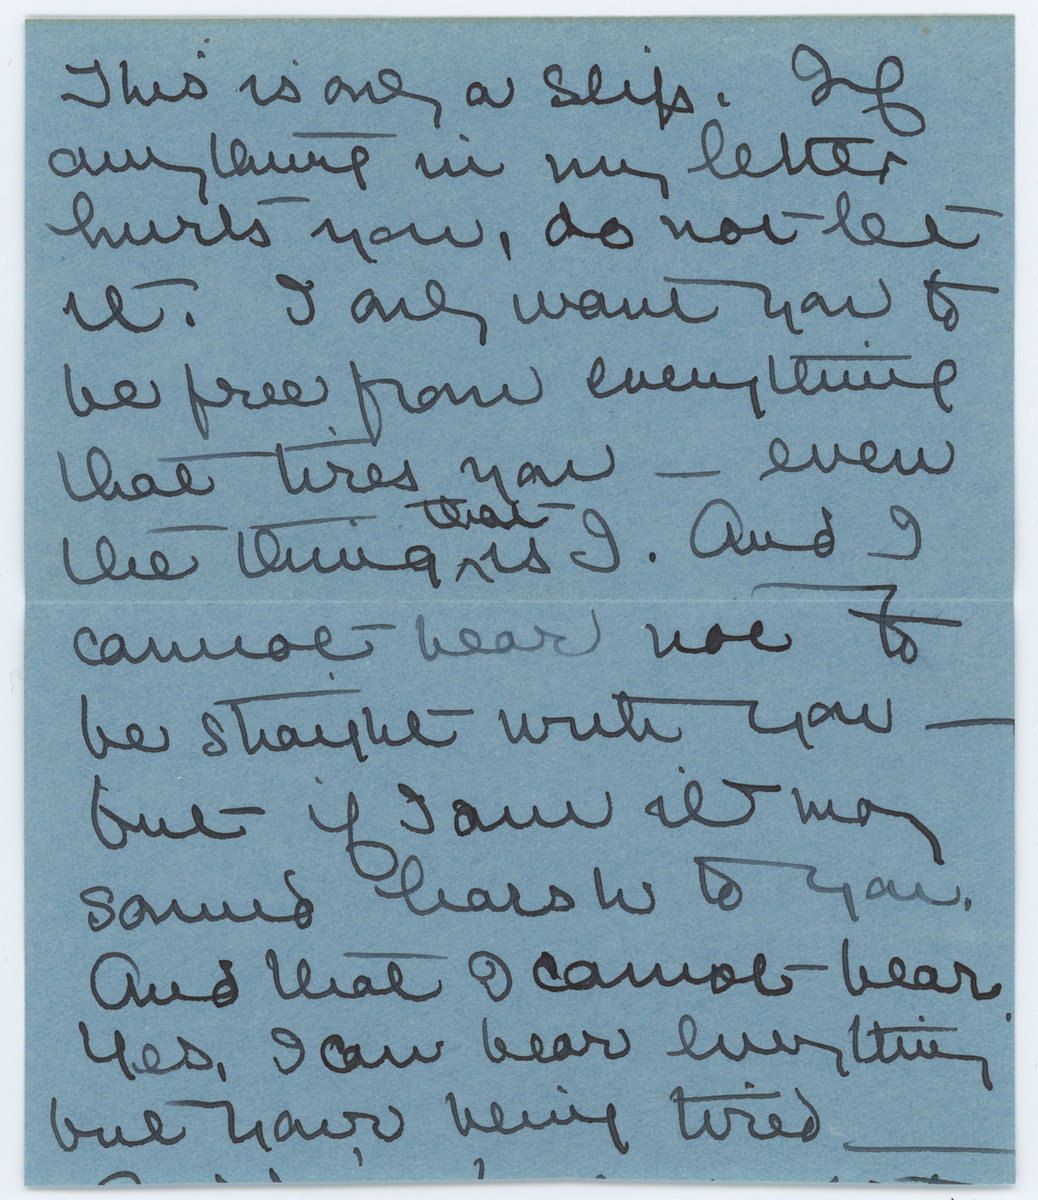 This is only a slip. If
anything in my letter
hurts you, do not let
it. I only want you to
be free from everything
that tires you — even
the thing that is I. And I
cannot bear not to
be straight with you —
but if I am it may
sound harsh to you.
And that I cannot bear.
Yes, I can bear everything
but your being tired —